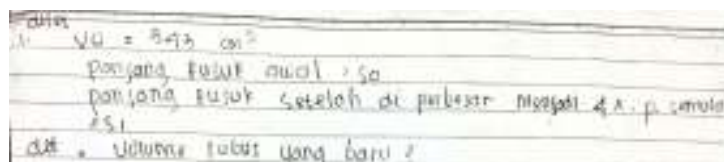 V0 = 343 cm³
panjang rusuk awal = s0
panjang rusuk setelah di perbesar menjadi 4 x. p. semula
= s1
dit = volume kubus yang baru ?